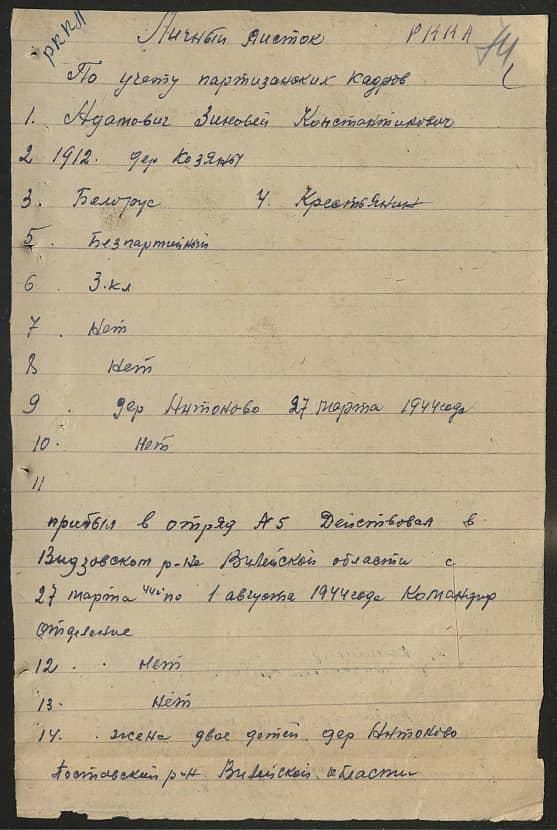 РККА
Личный листок РККА 74
По учету партизанских кадров
1. Адамович Зиновей Константинович
2 1912. дер Козяны
3. Белорус 4. Крестьянин
5. Безпартийный
6. 3.кл
7. Нет
8 Нет
9. дер Антоново 27 марта 1944года
10. Нет
11
прибыл в отряд №5 Действовал в
Видзовском р-не Вилейской области с
27 марта 44г по 1 августа 1944года Командир
отделение
12.. Нет
13. Нет
14.. жена двое детей. дер Антоново
Поставский р-н. Вилейской области